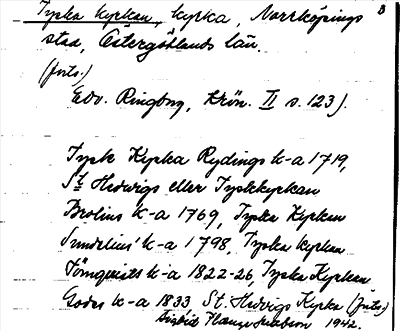 Tyska kyrkan, kyrka, Norrköpings B
stad, Östergötlands län.
(forts.)
Edv. Ringborg, Krön. II s. 123).
Tysk Kyrka Rydings k-a 1719,
St Hedwigs eller Tyskkyrkan
Brolins k-a 1769, Tyska Kyrkan
Sundelius' k-a 1798, Tyska kyrkan
Törnquists k-a 1822-26, Tyska Kyrkan
k-a 1833 St. Hedvigs Kyrka (forts.)
1942.